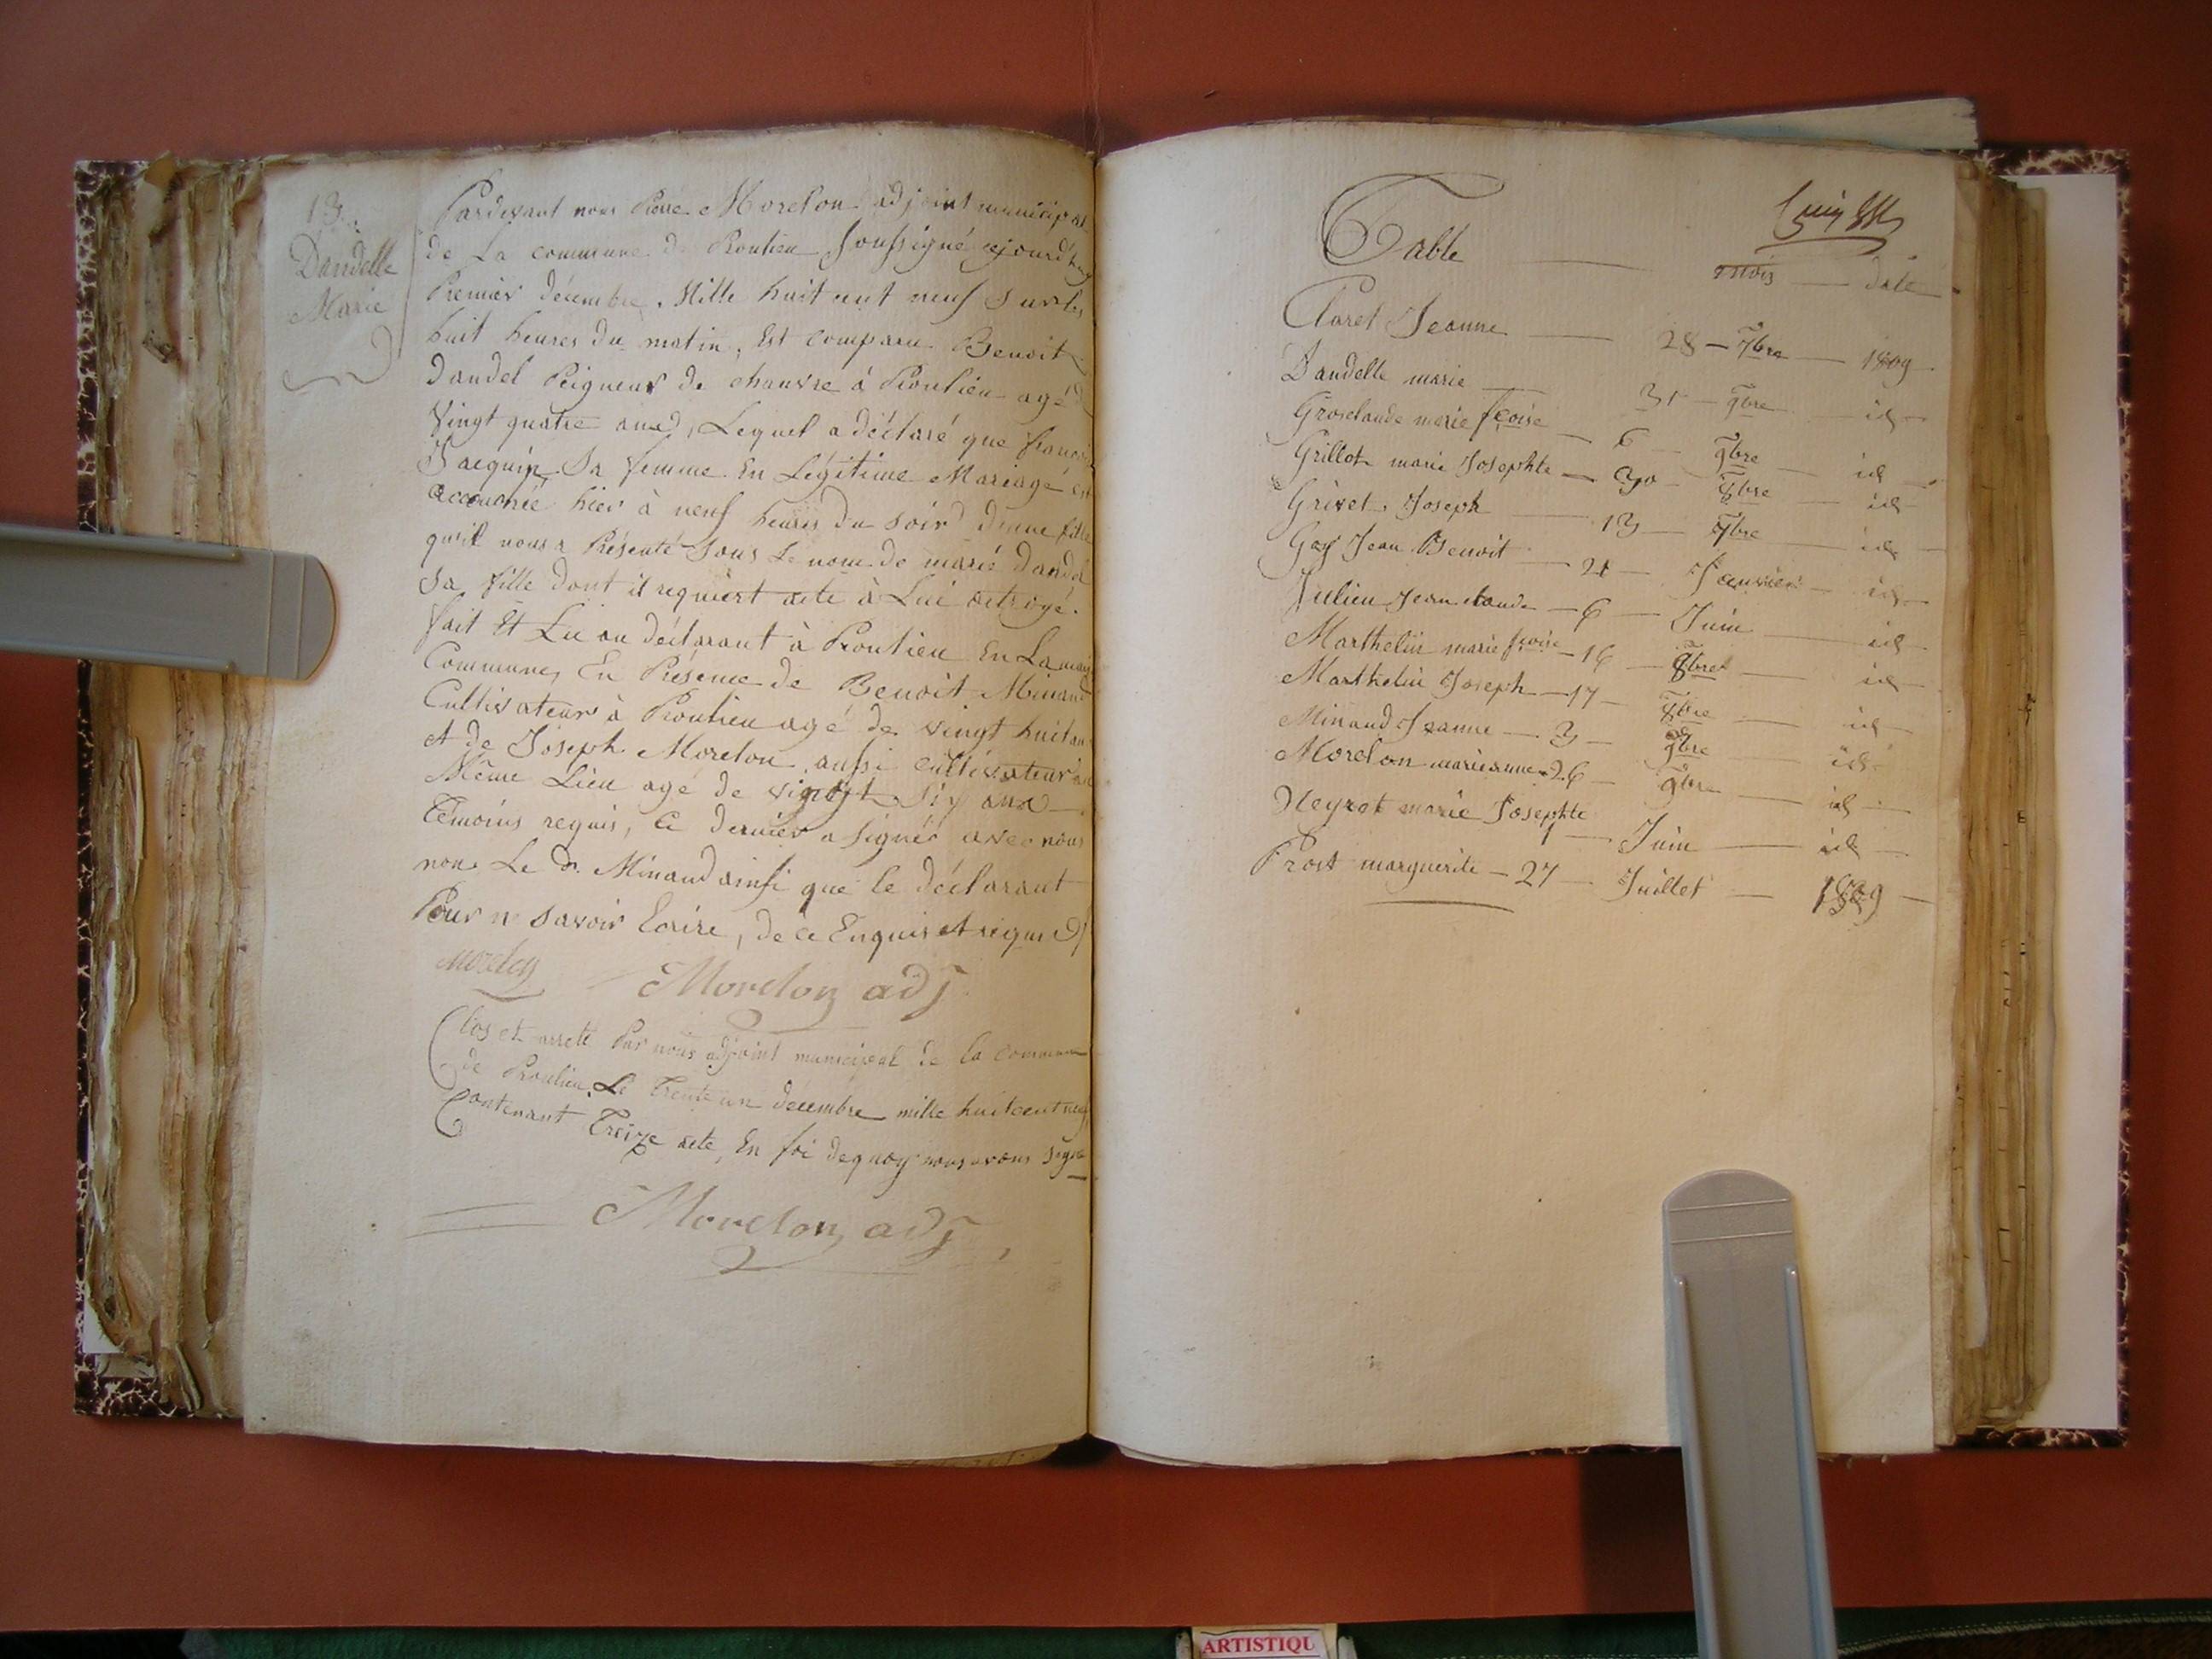 13.
Dandelle
Marie
Pardevant nous Pierre Morelon adjoint municipal
de La commune de Proulieu soussigné cejourdhuy
Premier décembre, Mille huit cent neuf Sur les
huit heures du matin, Est comparu Benoit
Dandel Peigneur de chanvre à Proulieu agé de
Vingt quatre ans, Lequel a déclaré que
Jacquin Sa femme En Légitime Mariage est
accouchée hier à neuf heures du soir d'une fille
qu'il nous a Présenté Sous Le nom de marie Dandel
Sa fille dont il requiert acte à Lui octroyé.
fait Et Lu au déclarant à Proulieu En La maison
Commune, En Présence de Benoit Minaud
Cultivateur à Proulieu agé de vingt huit ans
et de Joseph Morelon aussi cultivateur au
Même Lieu agé de vingt Six ans
Témoins requis, Ce dernier a signé avec nous
non Le dt. Minaud ainsi que le déclarant
Pour n savoir Ecrire, de ce Enquis et requis
morelon Morelon adj
Clos et arreté Par nous adjoint municipal de la commune
de Proulieu Le Trente un décembre mille huit cent neuf
Contenant Treize acte, En foi de quoy nous avons signé
Morelon adj
Table
mois — date
Claret Jeanne — 28 — 7bre — 1809
Dandelle marie — 31 — 9bre — id
Grosclaude marie fcoise — 6 — 9bre — id
Grillot marie Josephte — 30 — 8bre — id
Grivet Joseph — 13 — 7bre — id
Gay Jean Benoit — 21 — Janvier — id
Julieu Jean claude — 6 — Juin — id
Marthelin marie fcoise — 16 — 8bre — id
Marthelin Joseph — 17 — 8bre — id
Minaud Jeanne — 3 — 9bre — id
Morelon marieanne — 26 — 9bre — id
Neyret marie Josephte
1 — Juin — id
Prost marguerite — 27 — Juillet — 1809
ARTISTIQU